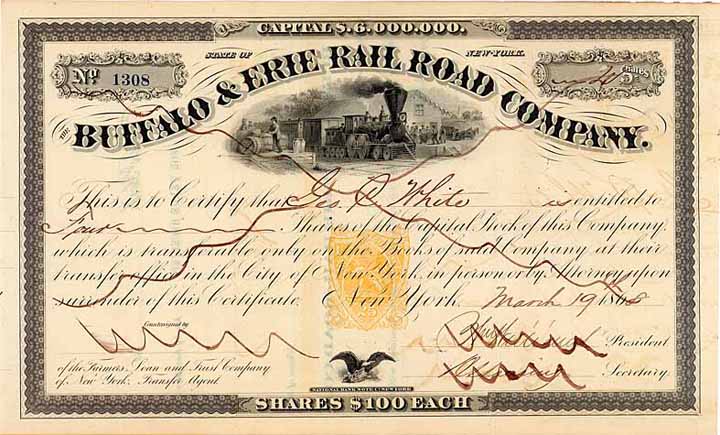 CAPITAL $.6,000,000.
STATE OF NEW-YORK.
No. 1308
Shares
THE BUFFALO & ERIE RAIL ROAD COMPANY.
This is to Certify that Geo. R. White is entitled to
Four Shares of the Capital Stock of this Company,
which is transferable only on the Books of said Company at their
transfer office in the City of New York, in person or by Attorney upon
surrender of this Certificate. New York March 19 1868
Countersigned by
President
of the Farmers Loan and Trust Company
of New York, Transfer Agent.
Secretary.
NATIONAL BANK NOTE Co. NEW YORK
SHARES $100 EACH